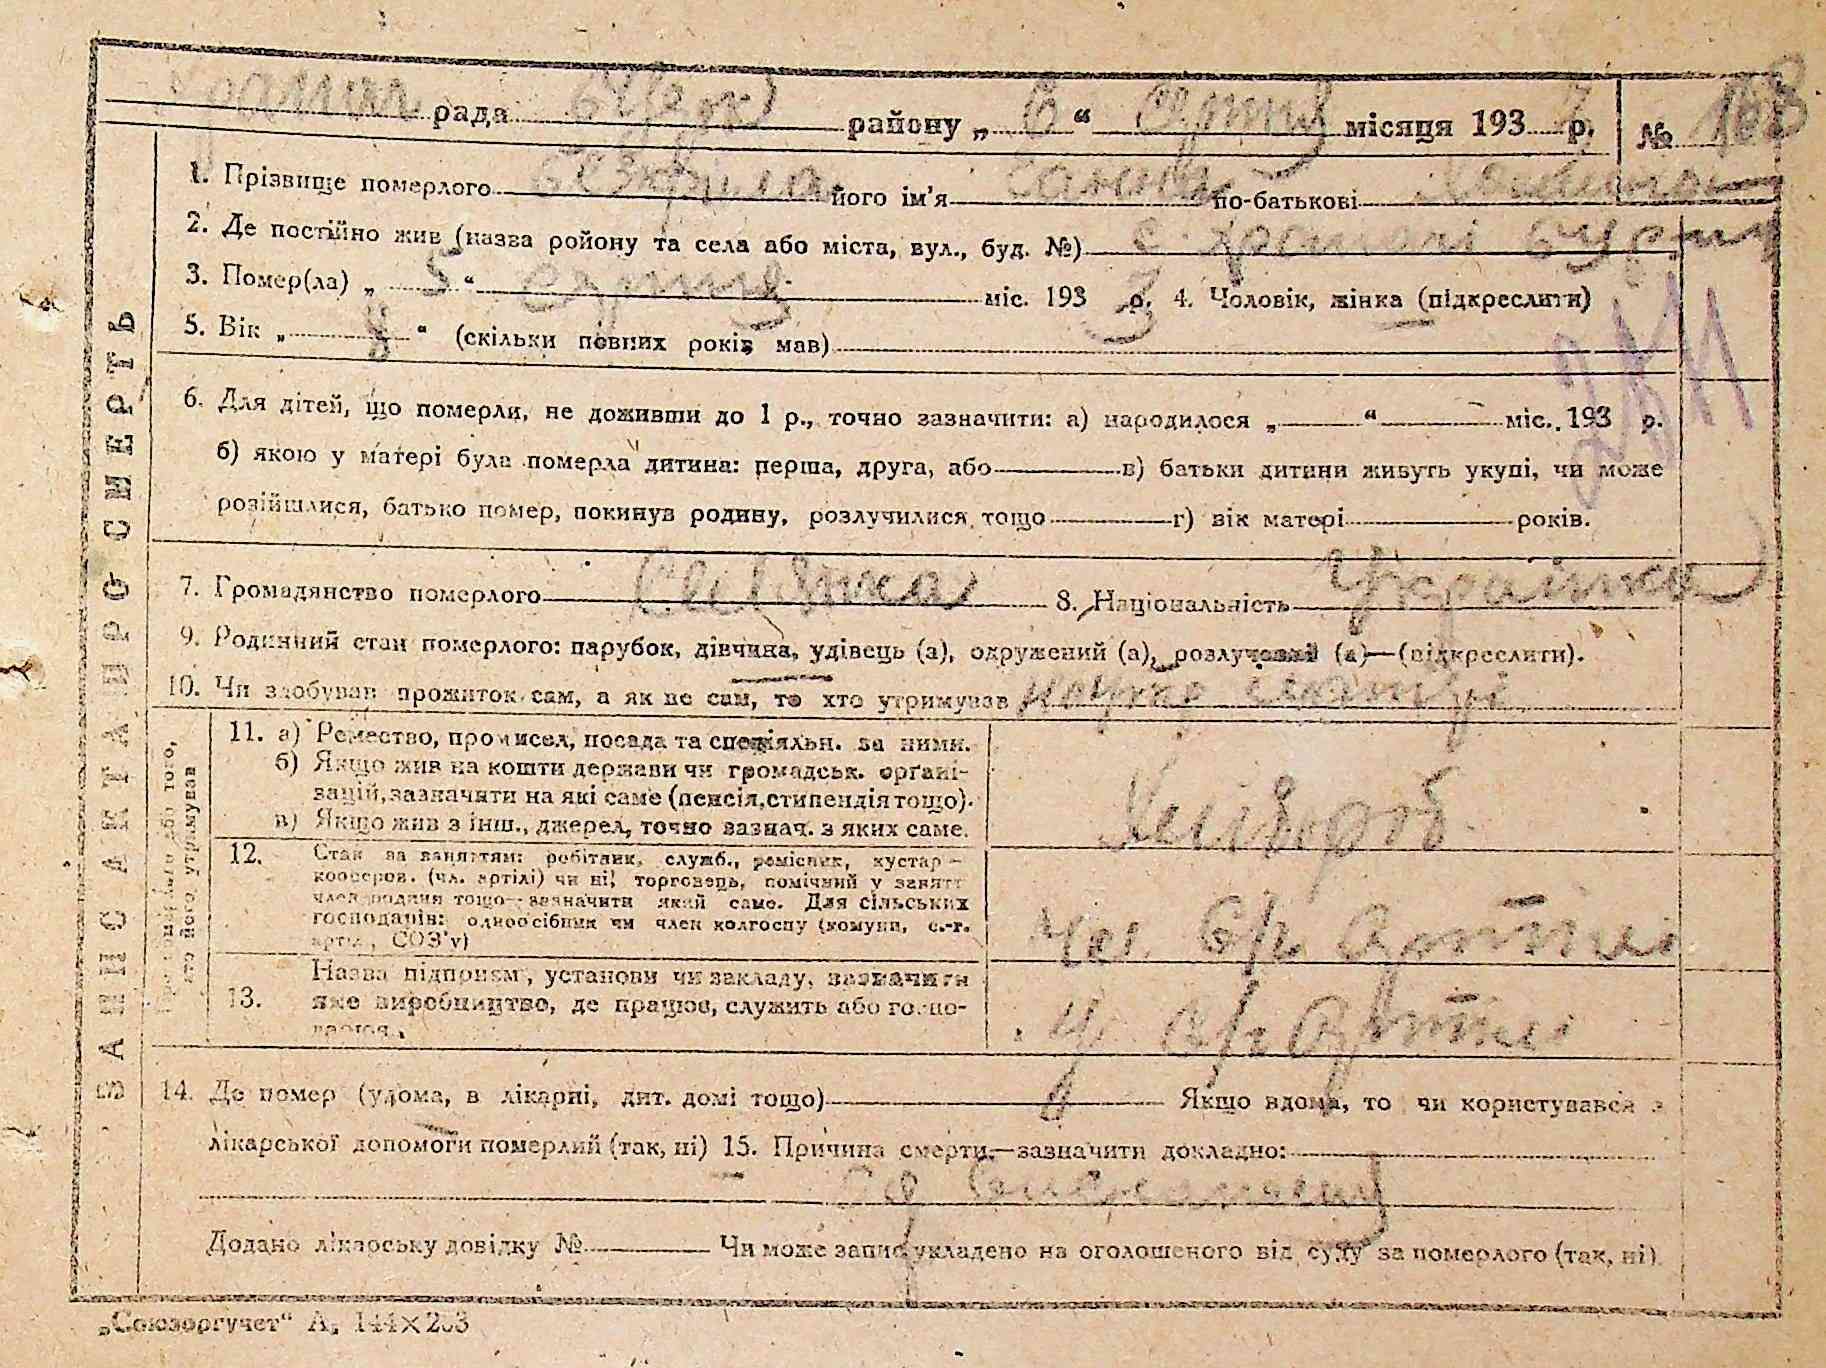 рада району „ 6 “ серпня місяця 193 3 р. № 168
1. Прізвище померлого його ім’я Ганна по-батькові
2. Де постійно жив (назва ройону та села або міста, вул., буд. №) с.
3. Помер(ла) „ 5 “ серпня міс. 193 3 р. 4. Чоловік, жінка (підкреслити)
5. Вік „ 8 “ (скільки повних років мав)
6. Для дітей, що померли, не доживши до 1 р., точно зазначити: а) народилося „ “ міс. 193 р.
б) якою у матері була померла дитина: перша, друга, або в) батьки дитини живуть укупі, чи може
розійшлися, батько помер, покинув родину, розлучилися тощо г) вік матері років.
7. Громадянство померлого 8. Національність Українка
9. Родинний стан померлого: парубок, дівчина, удівець (а), одружений (а), розлучений (а)—(підкреслити).
10. Чи здобував прожиток сам, а як не сам, то хто утримував
11. а) Ремество, промисел, посада та спеціяльн. за ними.
б) Якщо жив на кошти держави чи громадськ. органі-
зацій, зазначити на які саме (пенсія, стипендія тощо).
в) Якщо жив з інш., джерел, точно зазнач. з яких саме.
Хлібороб
12. Стан за заняттям: робітник, служб., ремісник, кустар –
кооперов. (чл. артілі) чи ні, торговець, помічний у занятт
член родини тощо—зазначити який саме. Для сільських
господарів: одноосібник чи член колгоспу (комуни, с.-г.
артіл, СОЗ’у)
чл. с/г. артілі
13. Назва підприєм, установи чи закладу, зазначити
яке виробництво, де працює, служить або госпо-
дарює.
у с/г артілі
14. Де помер (удома, в лікарні, дит. домі тощо) Якщо вдома, то чи користувався з
лікарської допомоги померлий (так, ні) 15. Причина смерти,—зазначити докладно:
Додано лікарську довідку № Чи може запис укладено на оголошеного від суду за померлого (так, ні)
ЗАПИС АКТА ПРО СМЕРТЬ
Про померлого або того,
хто його утримував
„Союзоргучет“ А₅ 144×203